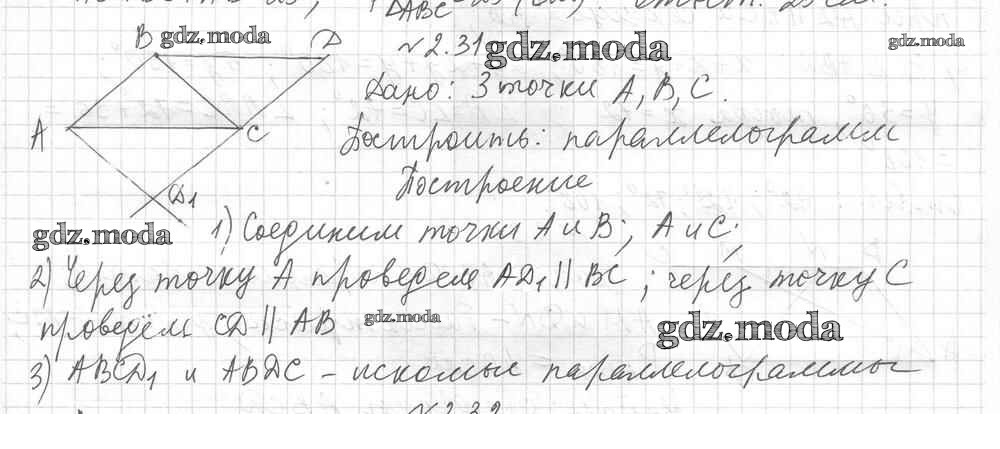 △ABC
B gdz.moda D
№2.31 gdz.moda gdz.moda
Дано: 3 точки A, B, C.
A C
Построить: параллелограмм
Построение
D1
gdz.moda 1) Соединим точки A и B; A и C;
2) Через точку A проведем AD1 || BC; через точку C
проведём CD || AB gdz.moda gdz.moda
3) ABCD1 и ABDC – искомые параллелограммы
№2.32